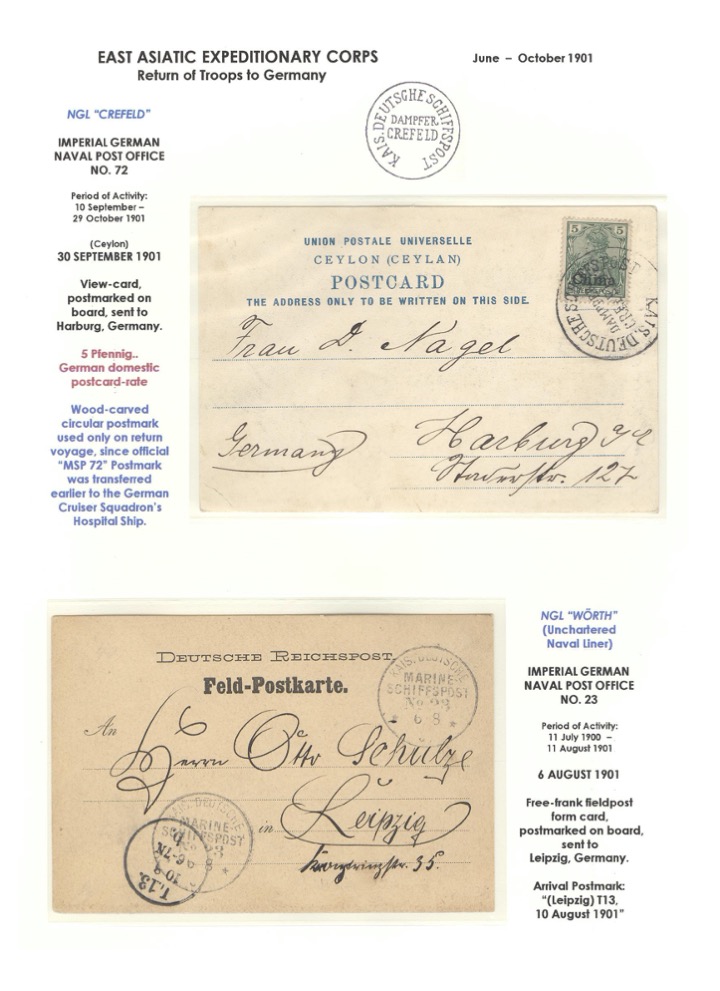 EAST ASIATIC EXPEDITIONARY CORPS
June – October 1901
Return of Troops to Germany
KAIS. DEUTSCHE SCHIFFSPOST
DAMPFER
CREFELD
NGL "CREFELD"
IMPERIAL GERMAN
NAVAL POST OFFICE
NO. 72
Period of Activity:
10 September –
29 October 1901
(Ceylon)
30 SEPTEMBER 1901
View-card,
postmarked on
board, sent to
Harburg, Germany.
5 Pfennig..
German domestic
postcard-rate
Wood-carved
circular postmark
used only on return
voyage, since official
"MSP 72" Postmark
was transferred
earlier to the German
Cruiser Squadron's
Hospital Ship.
UNION POSTALE UNIVERSELLE
CEYLON (CEYLAN)
POSTCARD
THE ADDRESS ONLY TO BE WRITTEN ON THIS SIDE.
5 5
China
KAIS. DEUTSCHE
Frau D. Nagel
Germany
Harburg
Staderstr. 127
DEUTSCHE REICHSPOST.
Feld-Postkarte.
KAIS. DEUTSCHE
MARINE-
SCHIFFSPOST
No 23
* 6 8 *
An
Herrn Otto Schulze
in Leipzig
35.
KAIS. DEUTSCHE
MARINE-
SCHIFFSPOST
T.13.
NGL "WÖRTH"
(Unchartered
Naval Liner)
IMPERIAL GERMAN
NAVAL POST OFFICE
NO. 23
Period of Activity:
11 July 1900 –
11 August 1901
6 AUGUST 1901
Free-frank fieldpost
form card,
postmarked on board,
sent to
Leipzig, Germany.
Arrival Postmark:
"(Leipzig) T13,
10 August 1901"